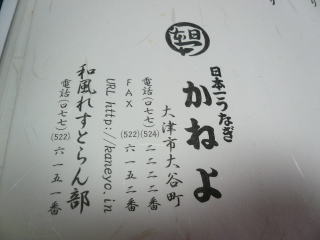 日本一うなぎ
かねよ
大津市大谷町
電話(〇七七)(524)二二二二番
FAX (522)六一五二番
URL http://kaneyo.in
和風れすとらん部
電話(〇七七)(522)六一五一番